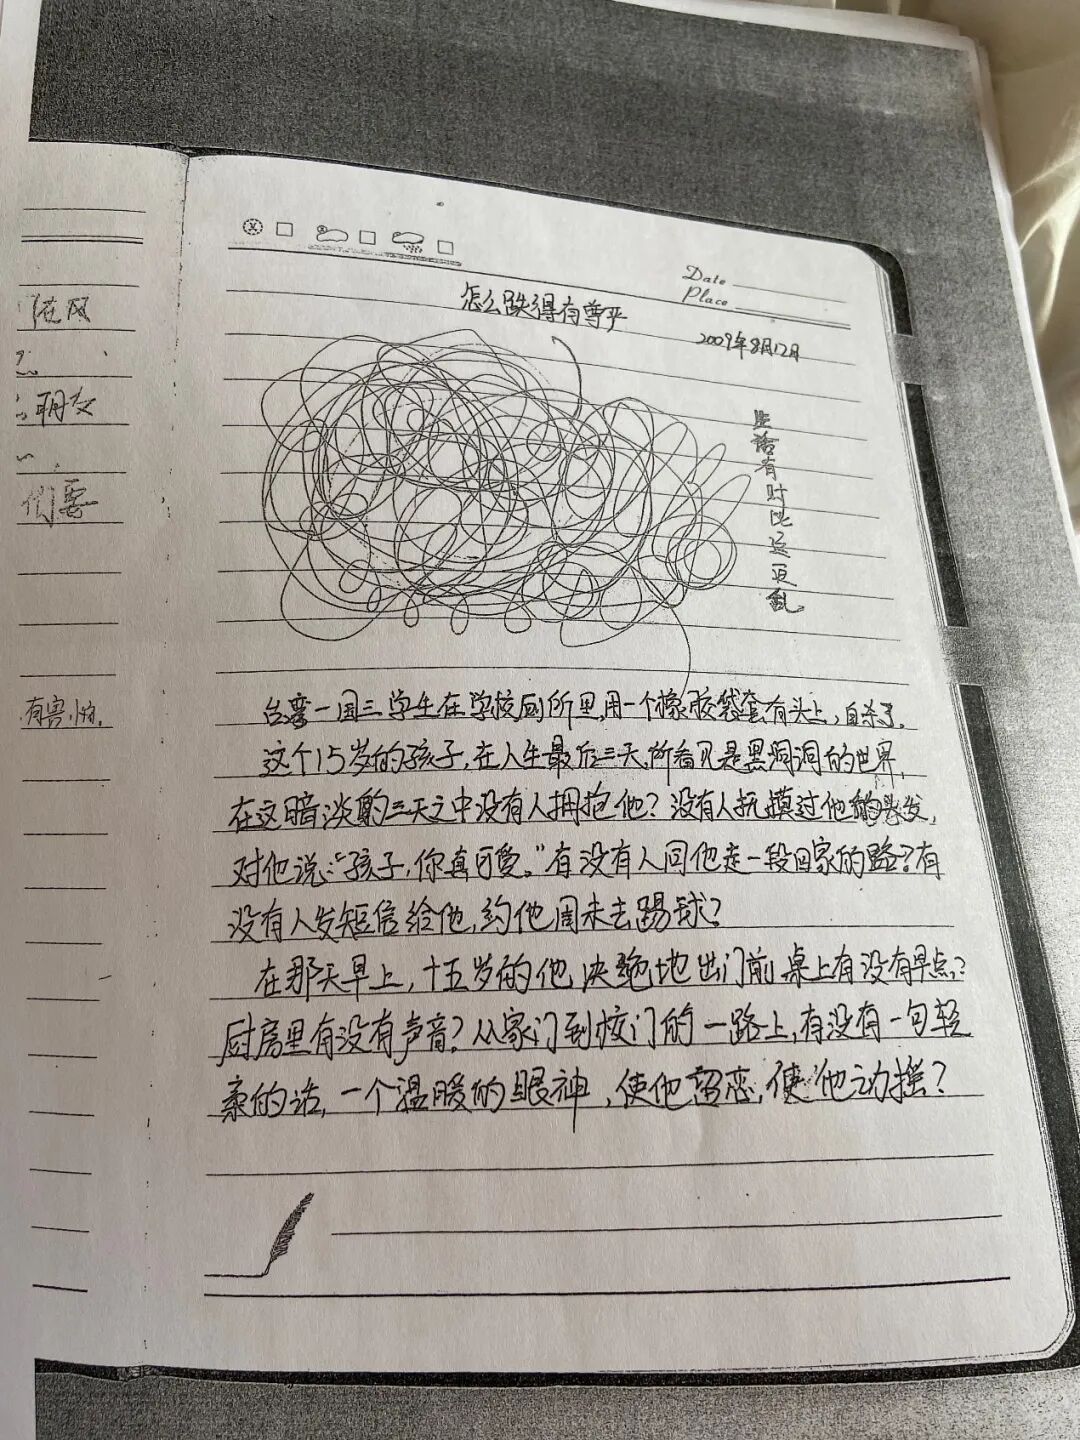 Date
Place
怎么跌得有尊严
2009年8月12日
生活有时比这更乱
住风
朋友
们要
有害怕.
台湾一国三学生在学校厕所里,用一个橡胶袋套在头上,自杀了.
这个15岁的孩子,在人生最后三天,所看见是黑洞洞的世界,
在这暗淡的三天之中没有人拥抱他?没有人抚摸过他的头发,
对他说:“孩子,你真可爱。”有没有人同他走一段回家的路?有
没有人发短信给他,约他周末去踢球?
在那天早上,十五岁的他,决绝地出门前,桌上有没有早点,?
厨房里有没有声音?从家门到校门的一路上,有没有一句轻
柔的话,一个温暖的眼神,使他留恋,使他动摇?